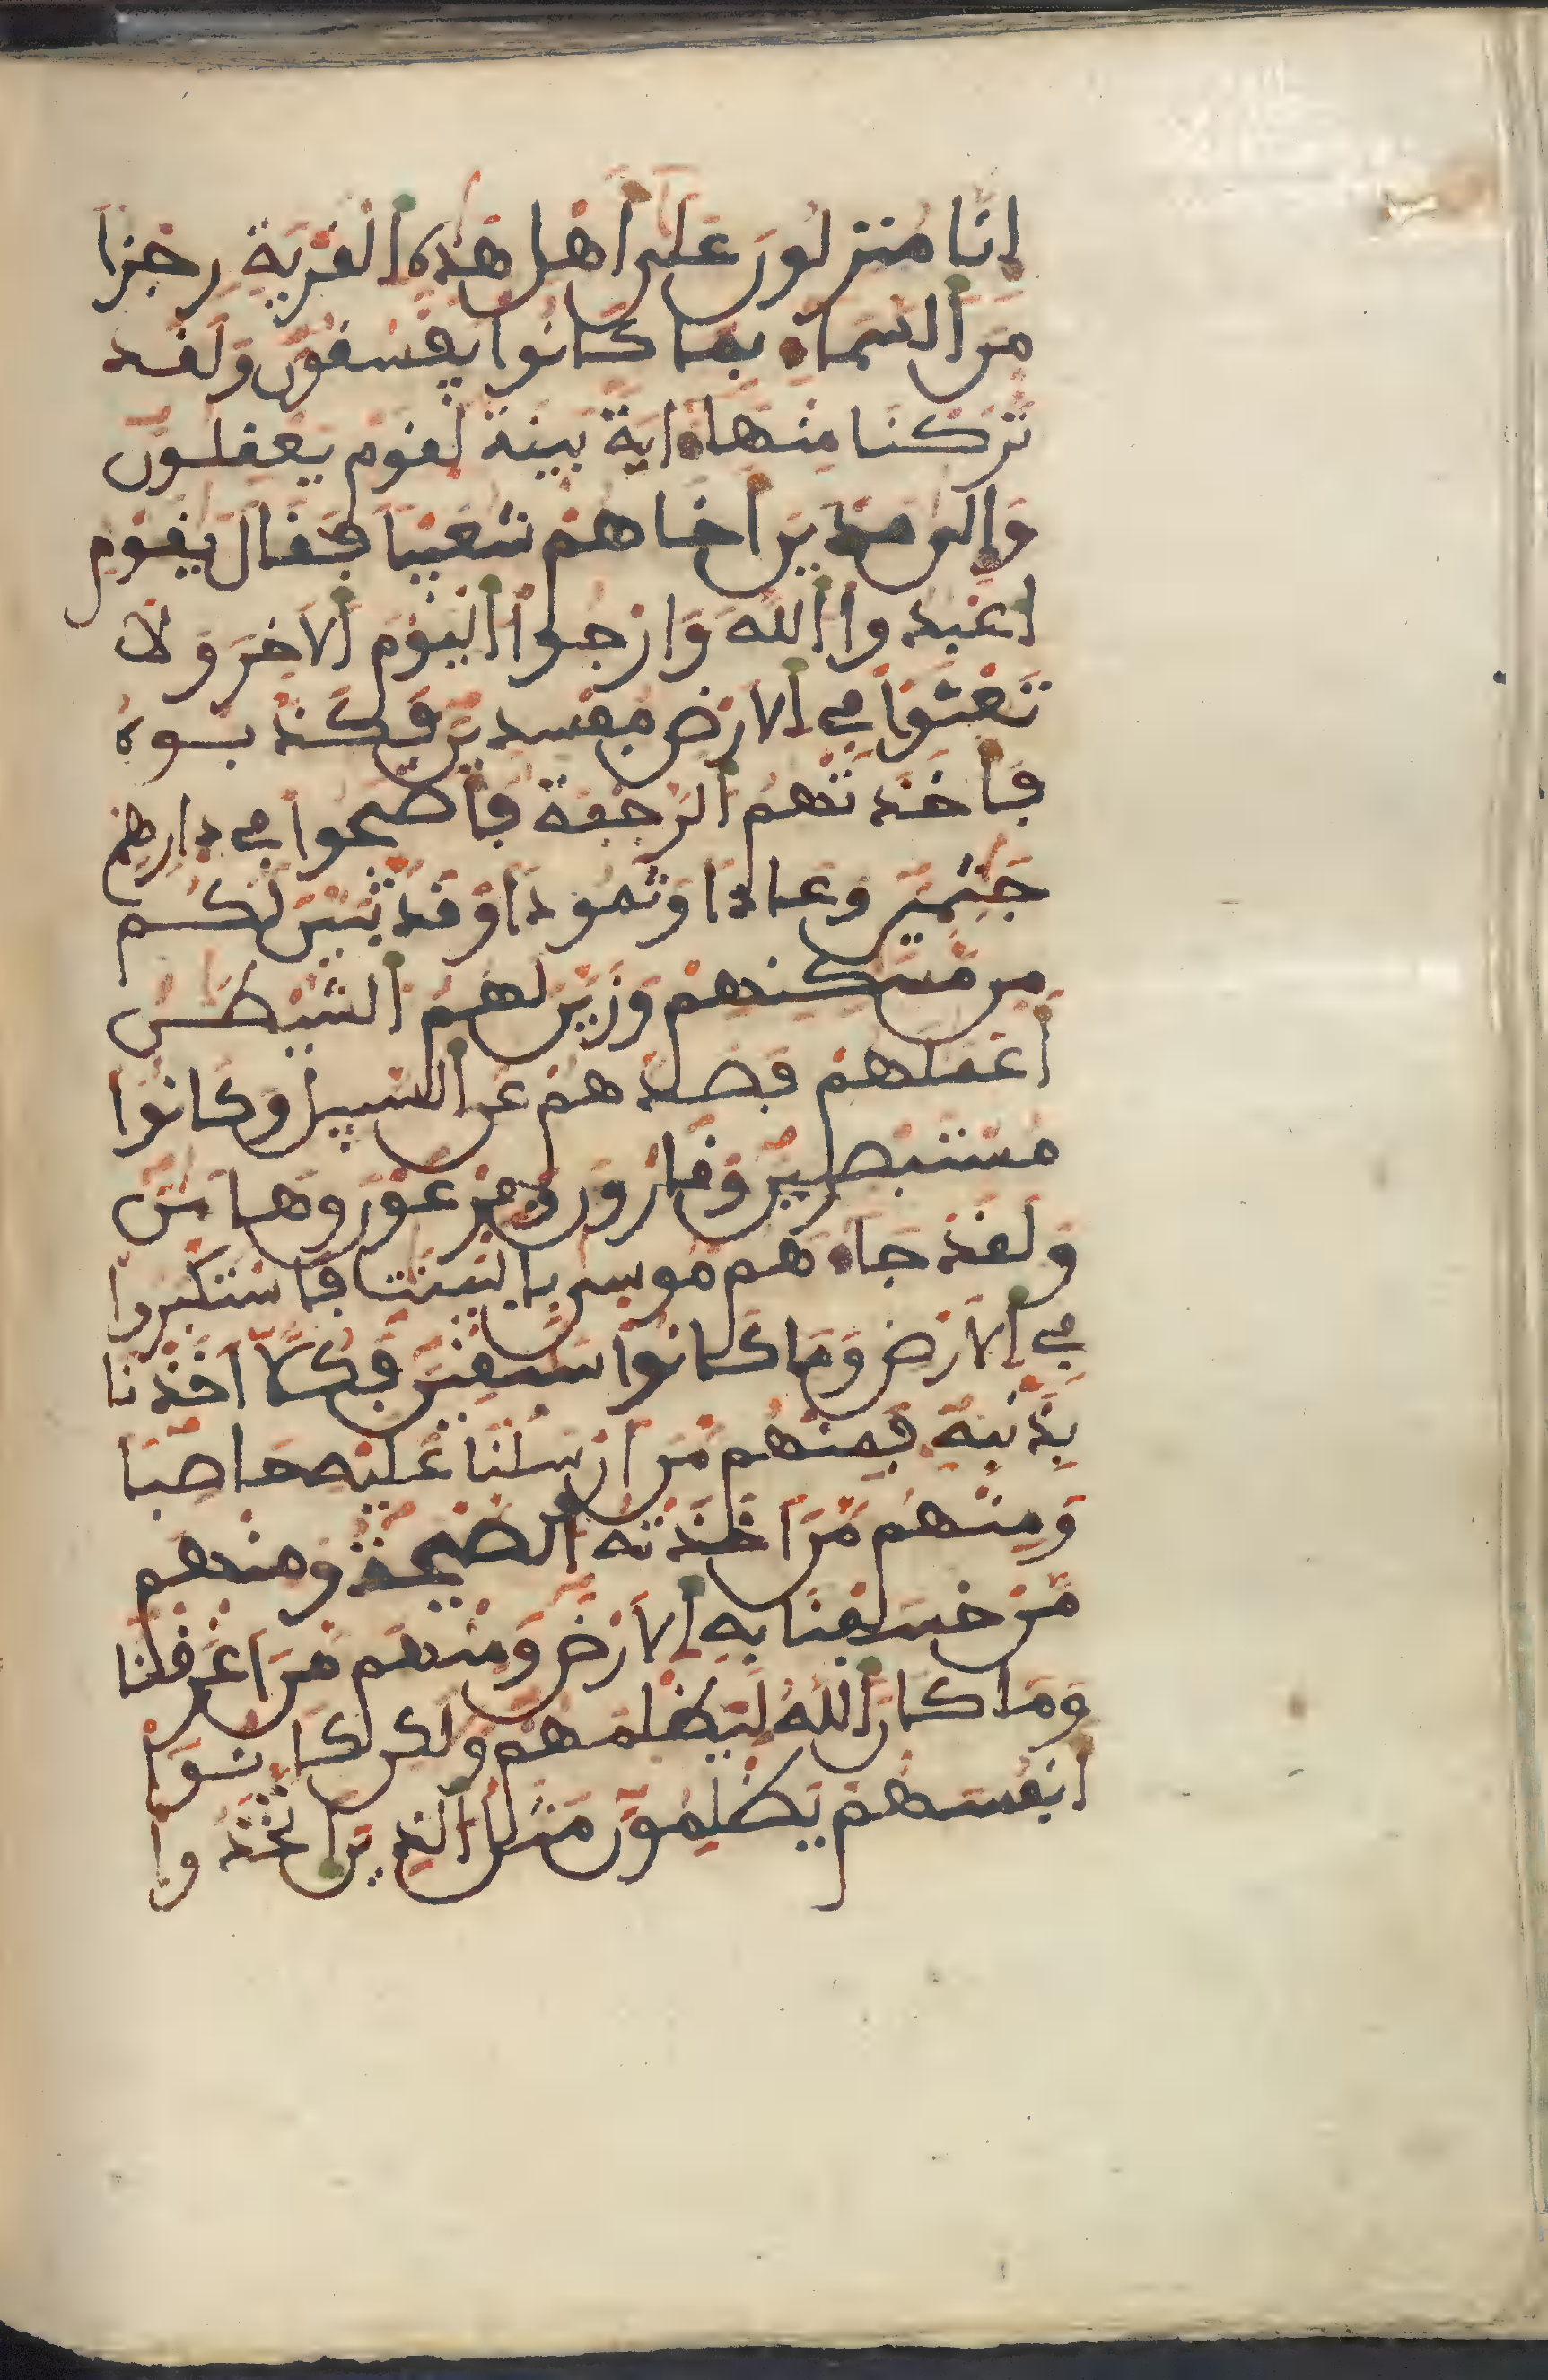 انا منزلون على أهل هذه ألقرية رجزا
من ألسماء بما كانوا يفسقون ولقد
تركنا منها ءاية بينة لقوم يعقلون
وإلى مدين أخاهم شعيبا فقال يقوم
اعبدوا ألله وارجوا أليوم ألاخر ولا
تعثوا في ألارض مفسدين فكذبوه
فأخذتهم ألرجفة فأصبحوا في دارهم
جثمين وعادا وثمودا وقد تبين لكم
من مسكنهم وزين لهم ألشيطن
أعملهم فصدهم عن ألسبيل وكانوا
مستبصرين وقارون وفرعون وهامن
ولقد جاءهم موسى بالبينت فاستكبروا
في ألارض وما كانوا سبقين فكلا اخذنا
بذنبه فمنهم من ارسلنا عليه حاصبا
ومنهم من اخذته ألصيحة ومنهم
من خسفنا به ألارض ومنهم من اغرقنا
وما كان ألله ليظلمهم ولكن كانوا
أنفسهم يظلمون مثل ألذين اتخذوا